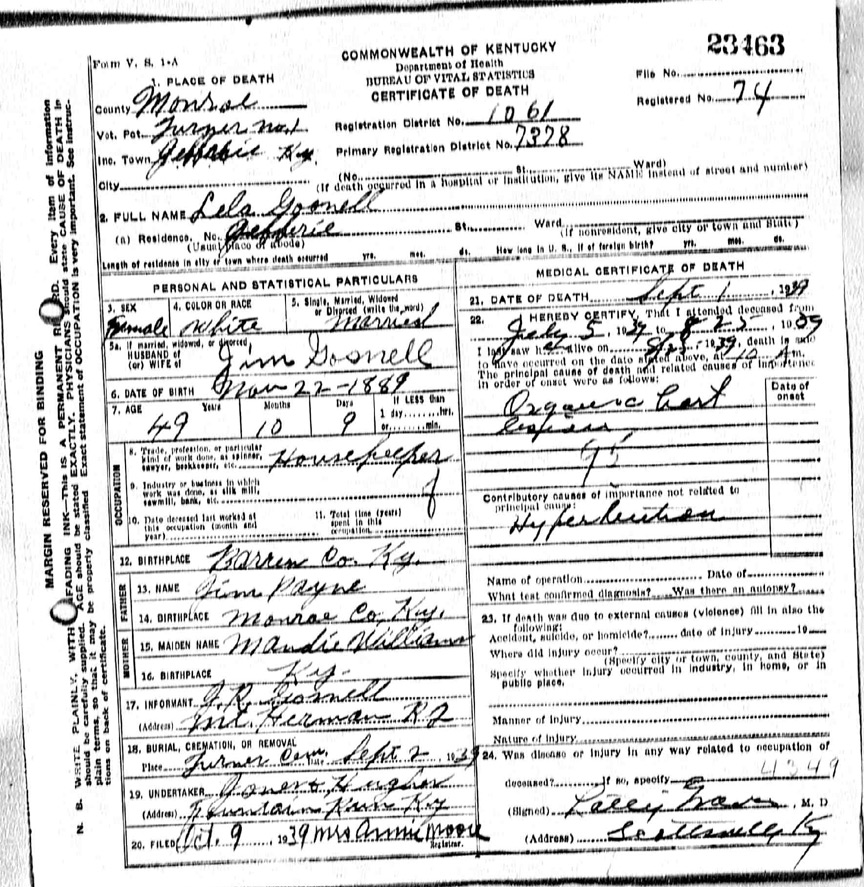 Form V. S. 1-A
23463
COMMONWEALTH OF KENTUCKY
Department of Health
BUREAU OF VITAL STATISTICS
CERTIFICATE OF DEATH
File No.
Registered No. 74
1. PLACE OF DEATH
County Monroe
Vot. Pct. Turner No. 1
Inc. Town Ky.
City
Registration District No. 1061
Primary Registration District No. 7378
(No. St. Ward)
(If death occurred in a hospital or institution, give its NAME instead of street and number)
2. FULL NAME Lela Gosnell
(a) Residence. No. St. Ward
(Usual place of abode) (If nonresident, give city or town and State)
Length of residence in city or town where death occurred yrs. mos. ds. How long in U. S., if of foreign birth? yrs. mos. ds.
PERSONAL AND STATISTICAL PARTICULARS
3. SEX 4. COLOR OR RACE 5. Single, Married, Widowed
or Divorced (write the word)
Female White Married
5a. If married, widowed, or divorced
HUSBAND of
(or) WIFE of Jim Gosnell
6. DATE OF BIRTH Nov 22-1889
7. AGE Years Months Days If LESS than
1 day......hrs.
or......min.
49 10 9
OCCUPATION
8. Trade, profession, or particular
kind of work done, as spinner,
sawyer, bookkeeper, etc. Housekeeper
9. Industry or business in which
work was done, as silk mill,
sawmill, bank, etc.
10. Date deceased last worked at
this occupation (month and
year)
11. Total time (years)
spent in this
occupation
12. BIRTHPLACE Barren Co. Ky.
FATHER
13. NAME Jim Payne
14. BIRTHPLACE Monroe Co. Ky.
MOTHER
15. MAIDEN NAME Maudie Williams
16. BIRTHPLACE Ky.
17. INFORMANT J. R. Gosnell
(Address) Mt. Herman Ky
18. BURIAL, CREMATION, OR REMOVAL
Place Turner Cem. Date Sept 2 1939
19. UNDERTAKER
(Address) Fountain Run Ky
20. FILED Oct. 9 1939 Mrs Annie Moore
Registrar.
MEDICAL CERTIFICATE OF DEATH
21. DATE OF DEATH Sept 1, 1939
22. I HEREBY CERTIFY, That I attended deceased from
July 5, 1939 to 8-25, 1939
I last saw her alive on 1939, death is said
to have occurred on the date stated above, at 10 A m.
The principal cause of death and related causes of importance
in order of onset were as follows:
Date of
onset
Organic heart
95
Contributory causes of importance not related to
principal cause:
Hypertention
Name of operation Date of
What test confirmed diagnosis? Was there an autopsy?
23. If death was due to external causes (violence) fill in also the
following:
Accident, suicide, or homicide? date of injury 19
Where did injury occur?
(Specify city or town, county, and State)
Specify whether injury occurred in industry, in home, or in
public place.
Manner of injury
Nature of injury
24. Was disease or injury in any way related to occupation of
4349
deceased? If so, specify
(Signed) M. D
(Address) Scottsville Ky
MARGIN RESERVED FOR BINDING
N. B. WRITE PLAINLY, WITH FADING INK—THIS IS A PERMANENT RECORD. Every item of information
should be carefully supplied. AGE should be stated EXACTLY. PHYSICIANS should state CAUSE OF DEATH in
plain terms, so that it may be properly classified. Exact statement of OCCUPATION is very important. See instruc-
tions on back of certificate.